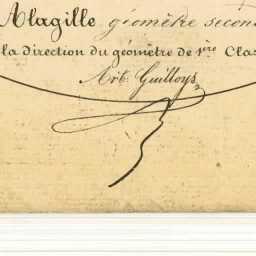 Alagille géomètre second
la direction du géomètre de 1ère Clas
Art Guilloys